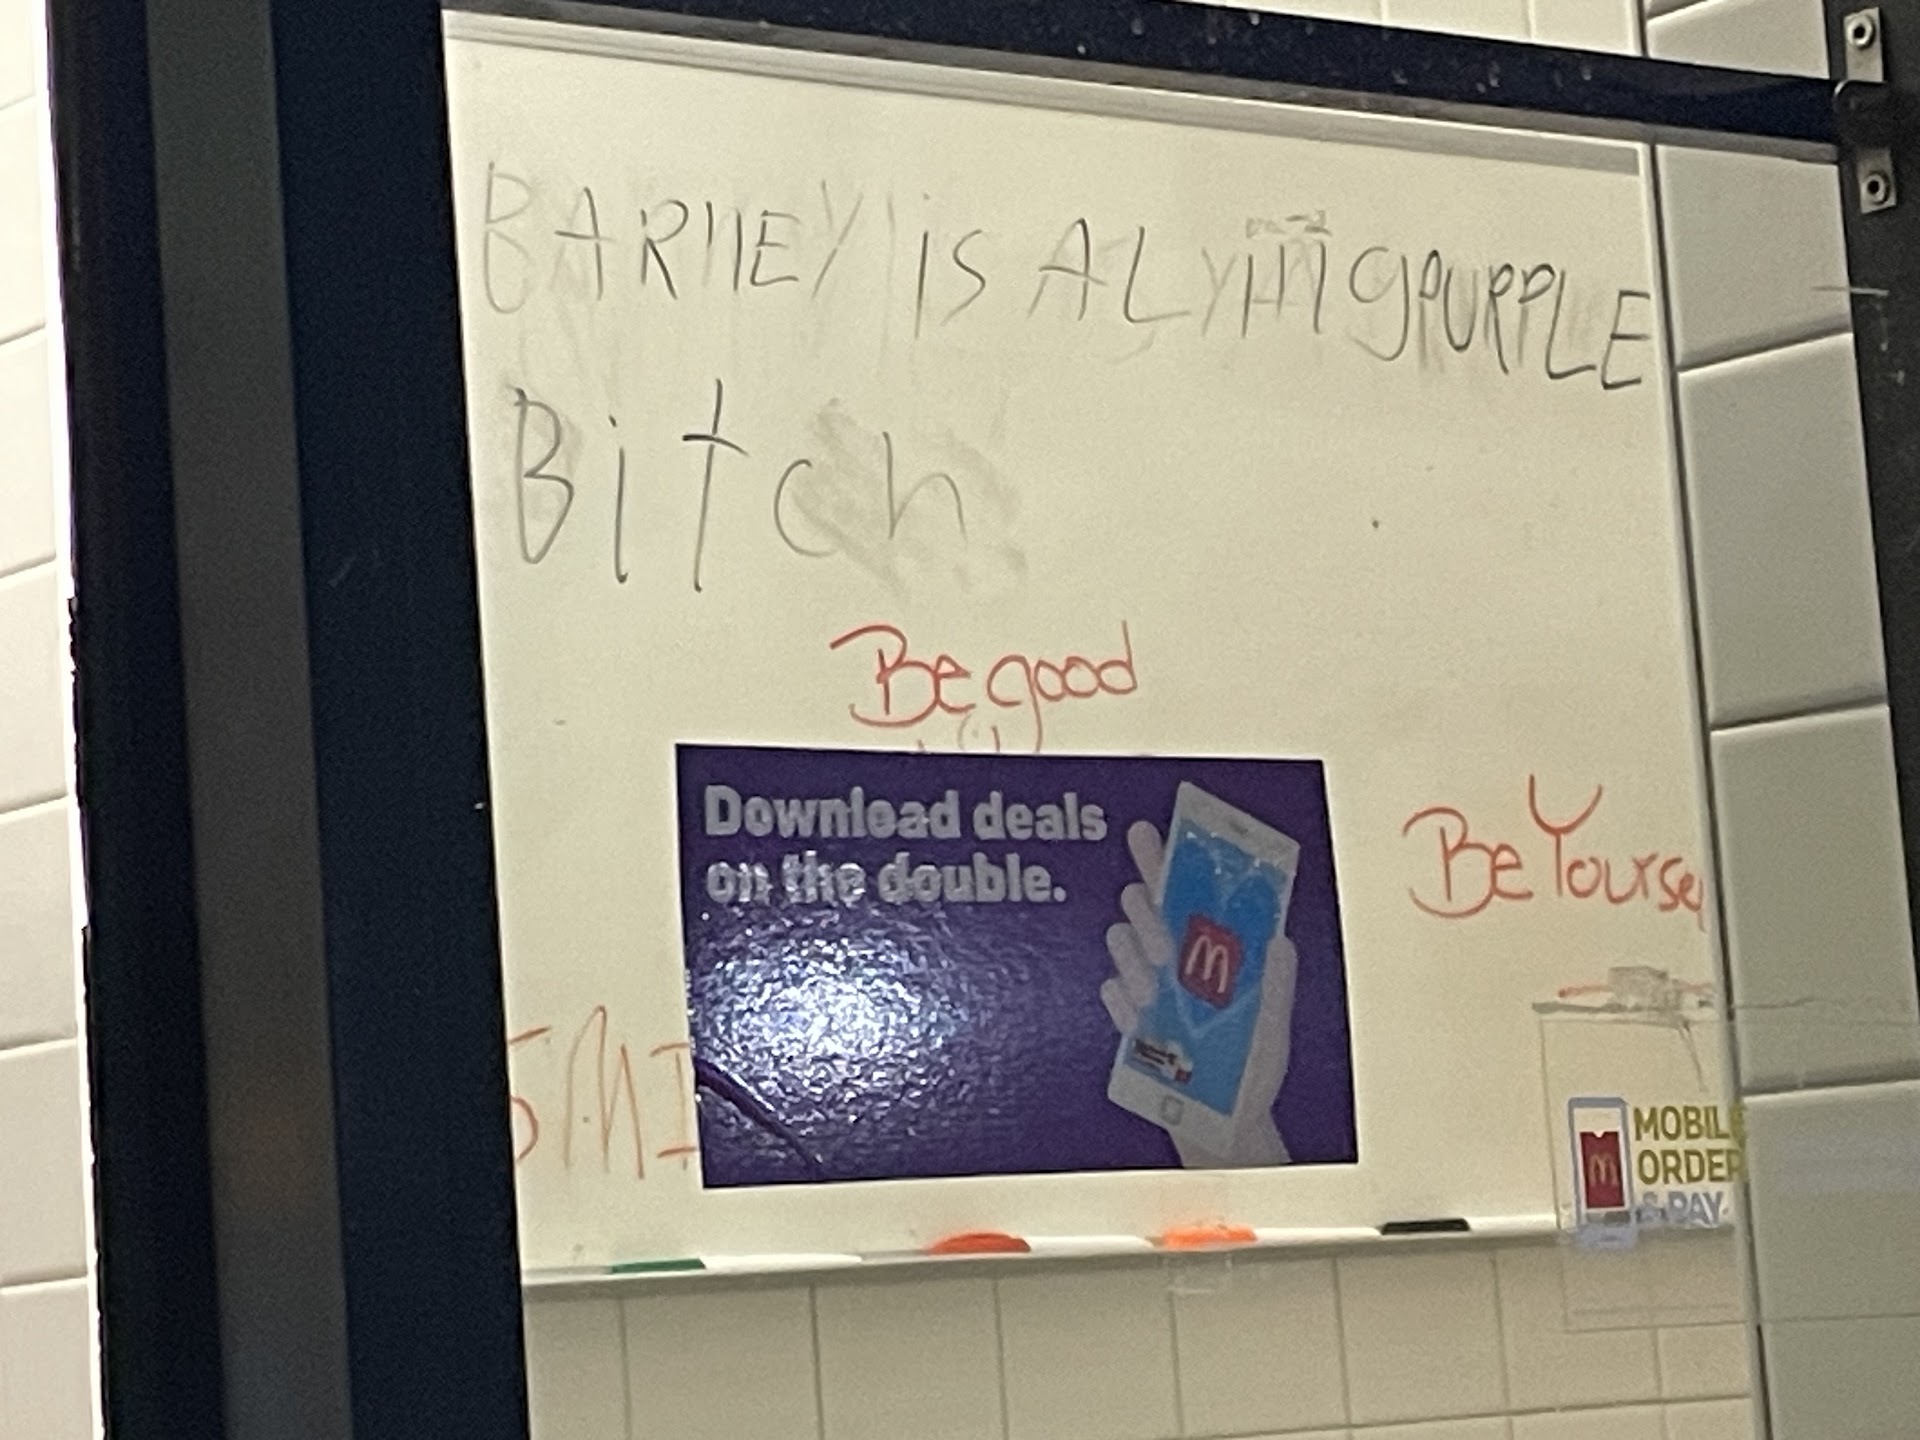 BARNEY is A LYING PURPLE
Bitch
Be good
Download deals
on the double.
Be Yourse
SMI
MOBILE
ORDER
& PAY